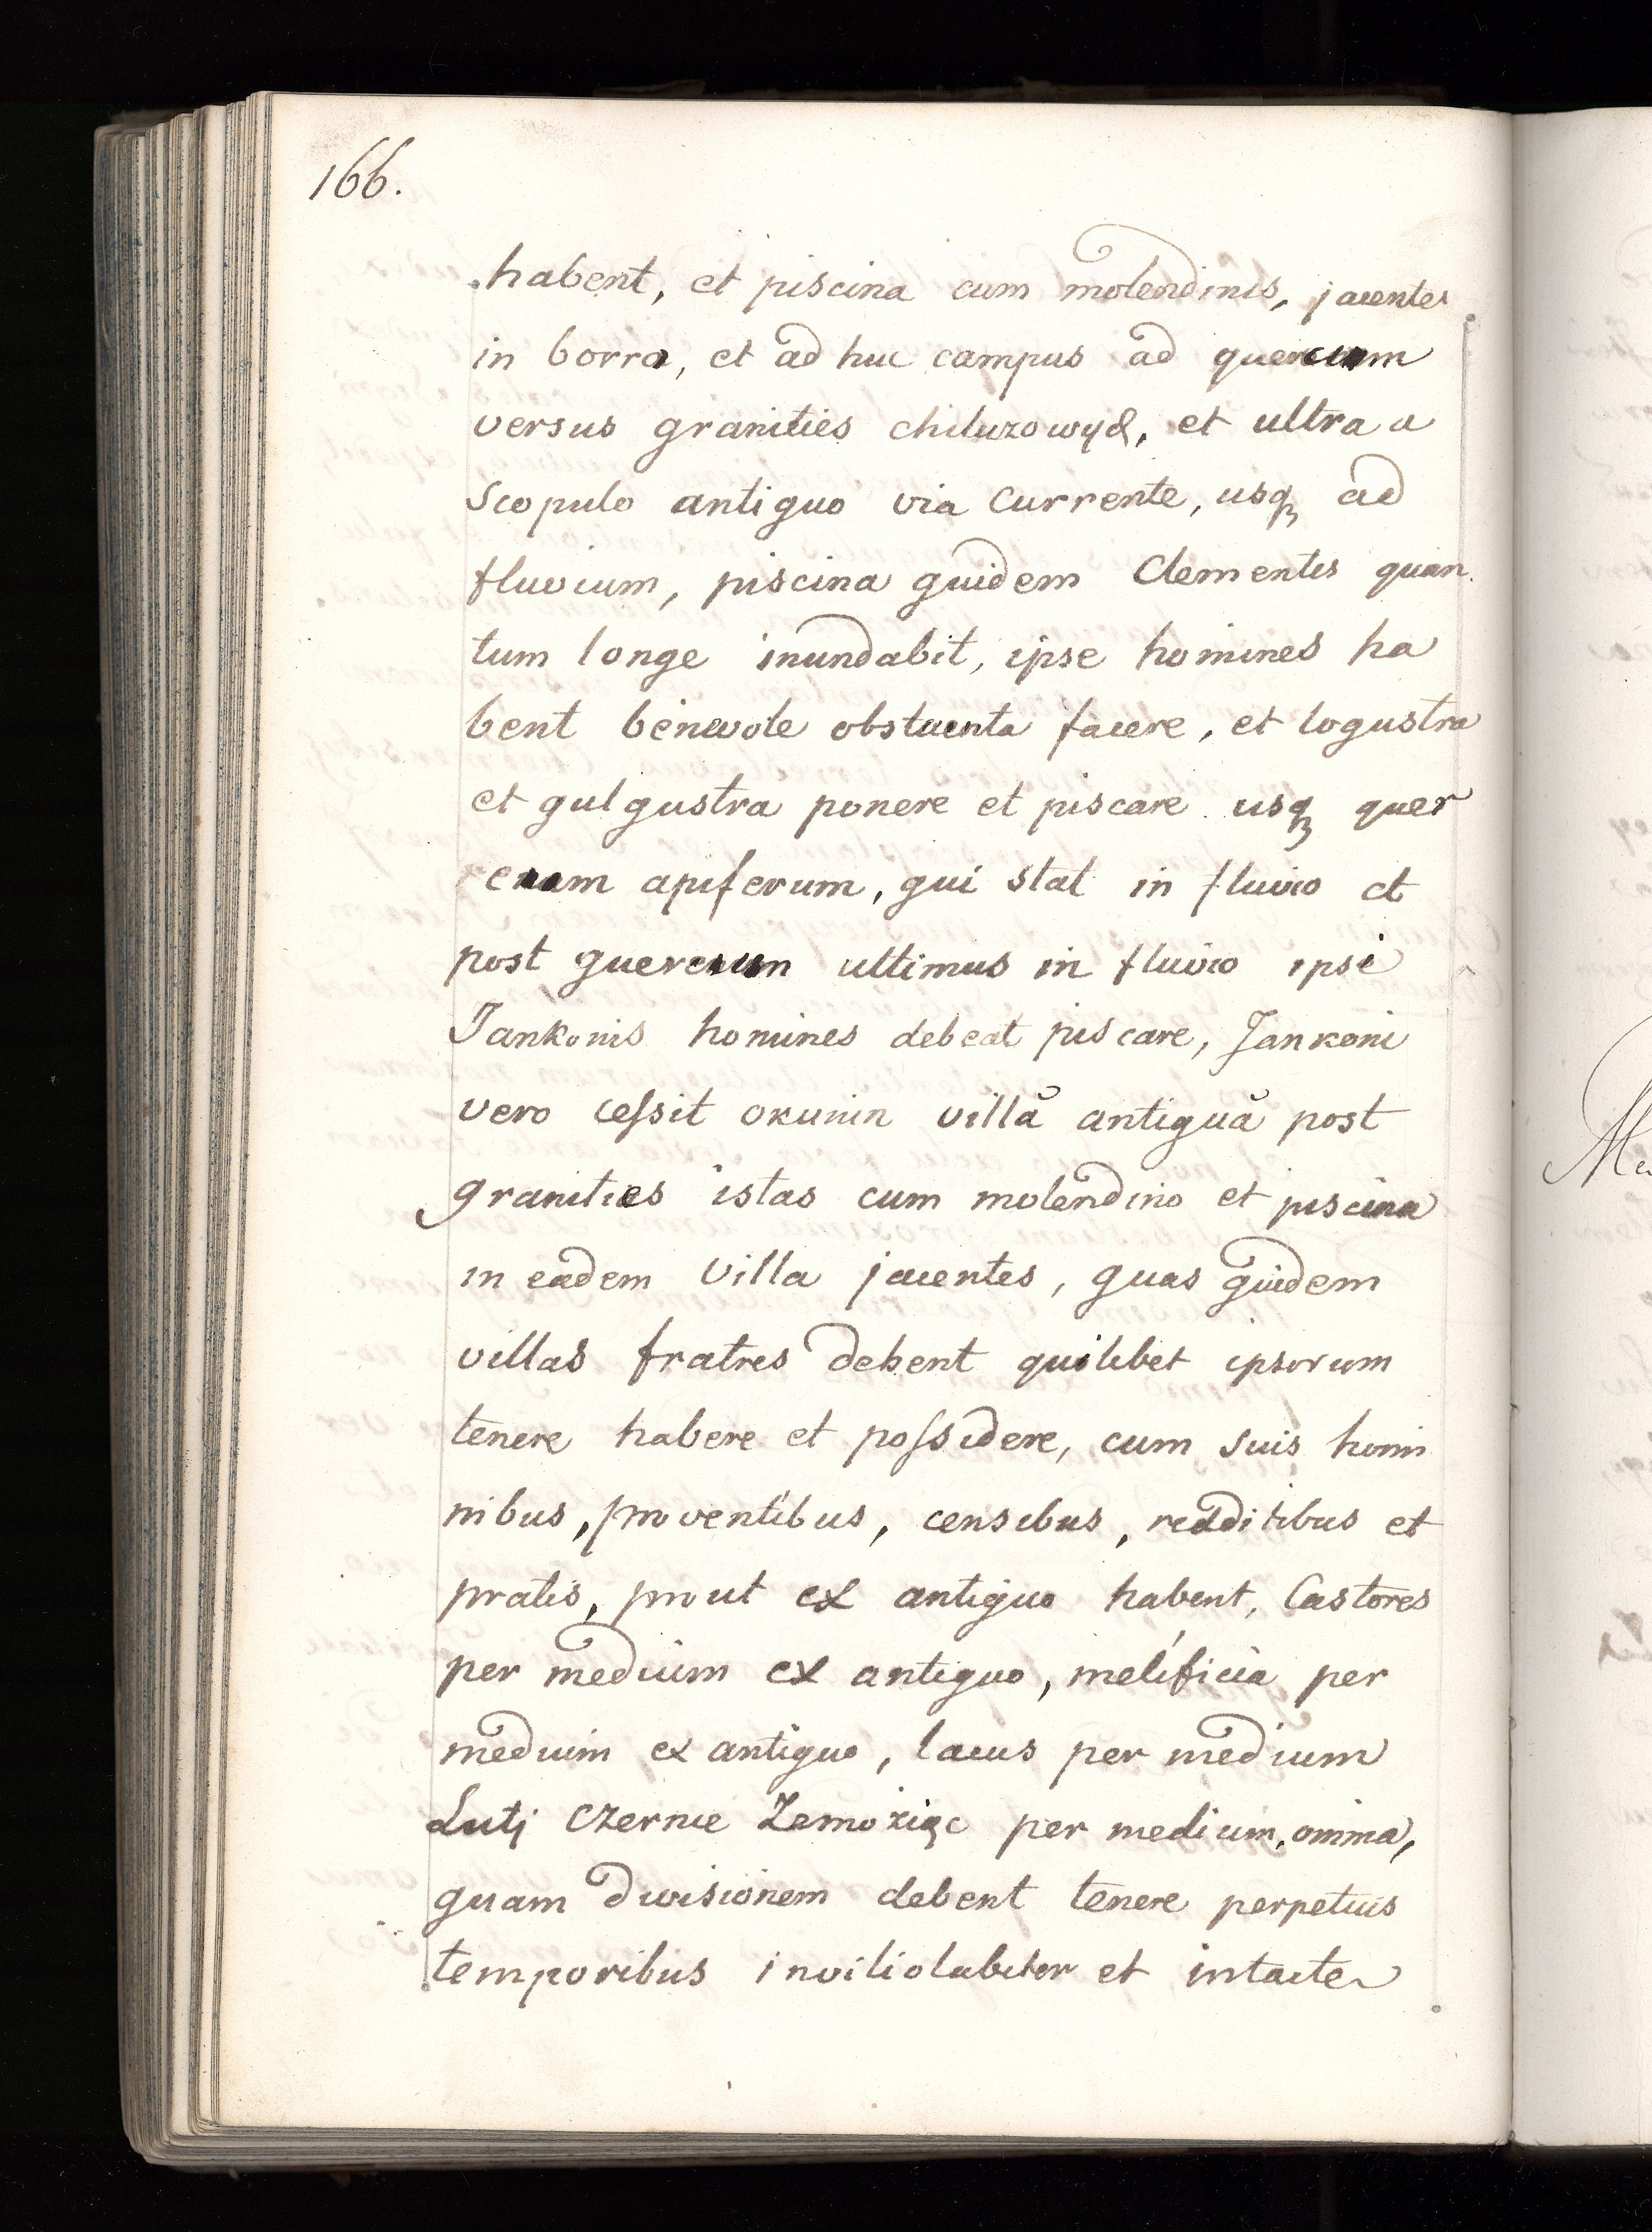 166.
habent, et piscina cum molendinis, jacentes
in borra, et ad huc campus ad quercum
versus granities chiluzowyd, et ultra a
scopulo antiquo via currente, usq ad
fluvium, piscina quidem Clementis quan
tum longe inundabit, ipse homines ha
bent benevole obstacenta facere, et logustra
et gulgustra ponere et piscare usq quer
cum apiferum, qui stat in fluvio et
post quercum ultimus in fluvio ipsi
Jankonis homines debeat piscare, Jankoni
vero cessit okunin villā antiquā post
granities istas cum molendino et piscina
in eadem villa jacentes, quas quidem
villas fratres debent quilibet ipsorum
tenere habere et possidere, cum suis homi
nibus, proventibus, censibus, redditibus et
pratis, prout ex antiquo habent, Castores
per medium ex antiquo, melificia per
medium ex antiquo, lacus per medium
Lutj Czernie per medium, omnia,
quam divisionem debent tenere perpetuis
temporibus inviliolabiter et intacte